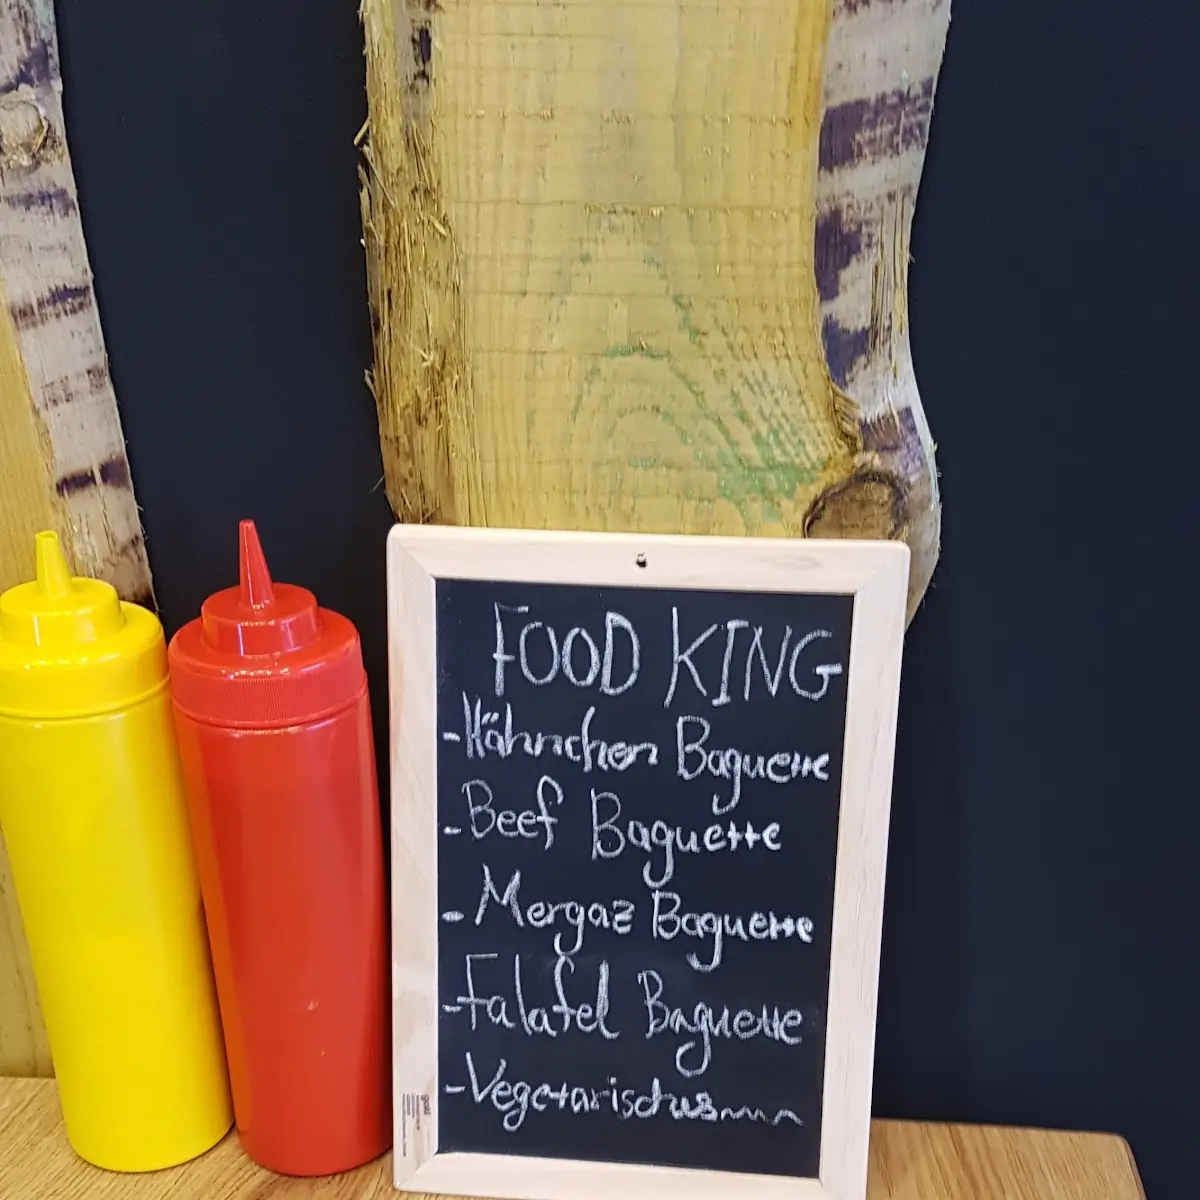 FOOD KING
- Hähnchen Baguette
- Beef Baguette
- Mergaz Baguette
- Falafel Baguette
- Vegetarisches